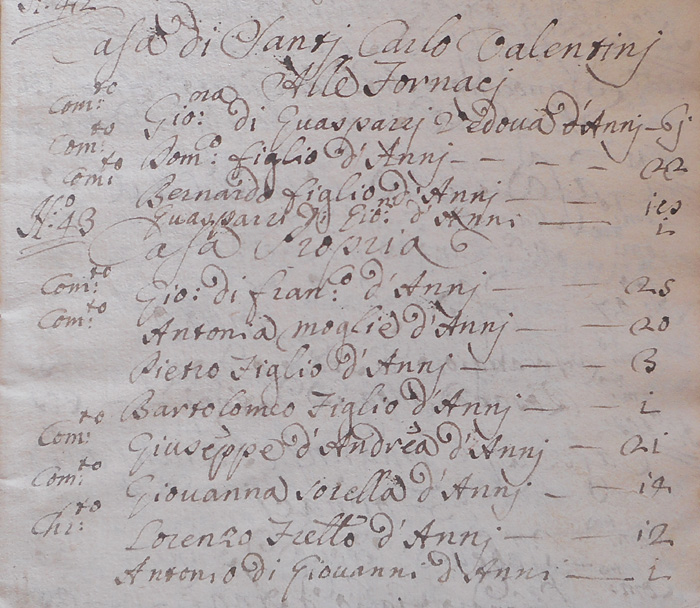 N.o 42
Casa di Santj Carlo Valentinj
Alle Fornacj
Com.to Gio:na di Guasparrj Vedova d'Annj — 61
Com.to Dom.o figlio d'Annj — — — — 22
Com.to Bernardo figlio d'Annj — — —
Guasparri di Gio: d'Anni — — 1
N.o 43 Casa Propria
Com.to Gio: di Fran.o d'Annj — — — 25
Com.to Antonia moglie d'Annj — — 20
Pietro Figlio d'Annj — — — 3
Bartolomeo Figlio d'Annj — — 1
Com.to Giuseppe d'Andrea d'Annj — — 21
Com.to Giovanna sorella d'Annj — — 14
Chr.to Lorenzo Fretto d'Annj — — 12
Antonio di Giovanni d'Anni — — 1